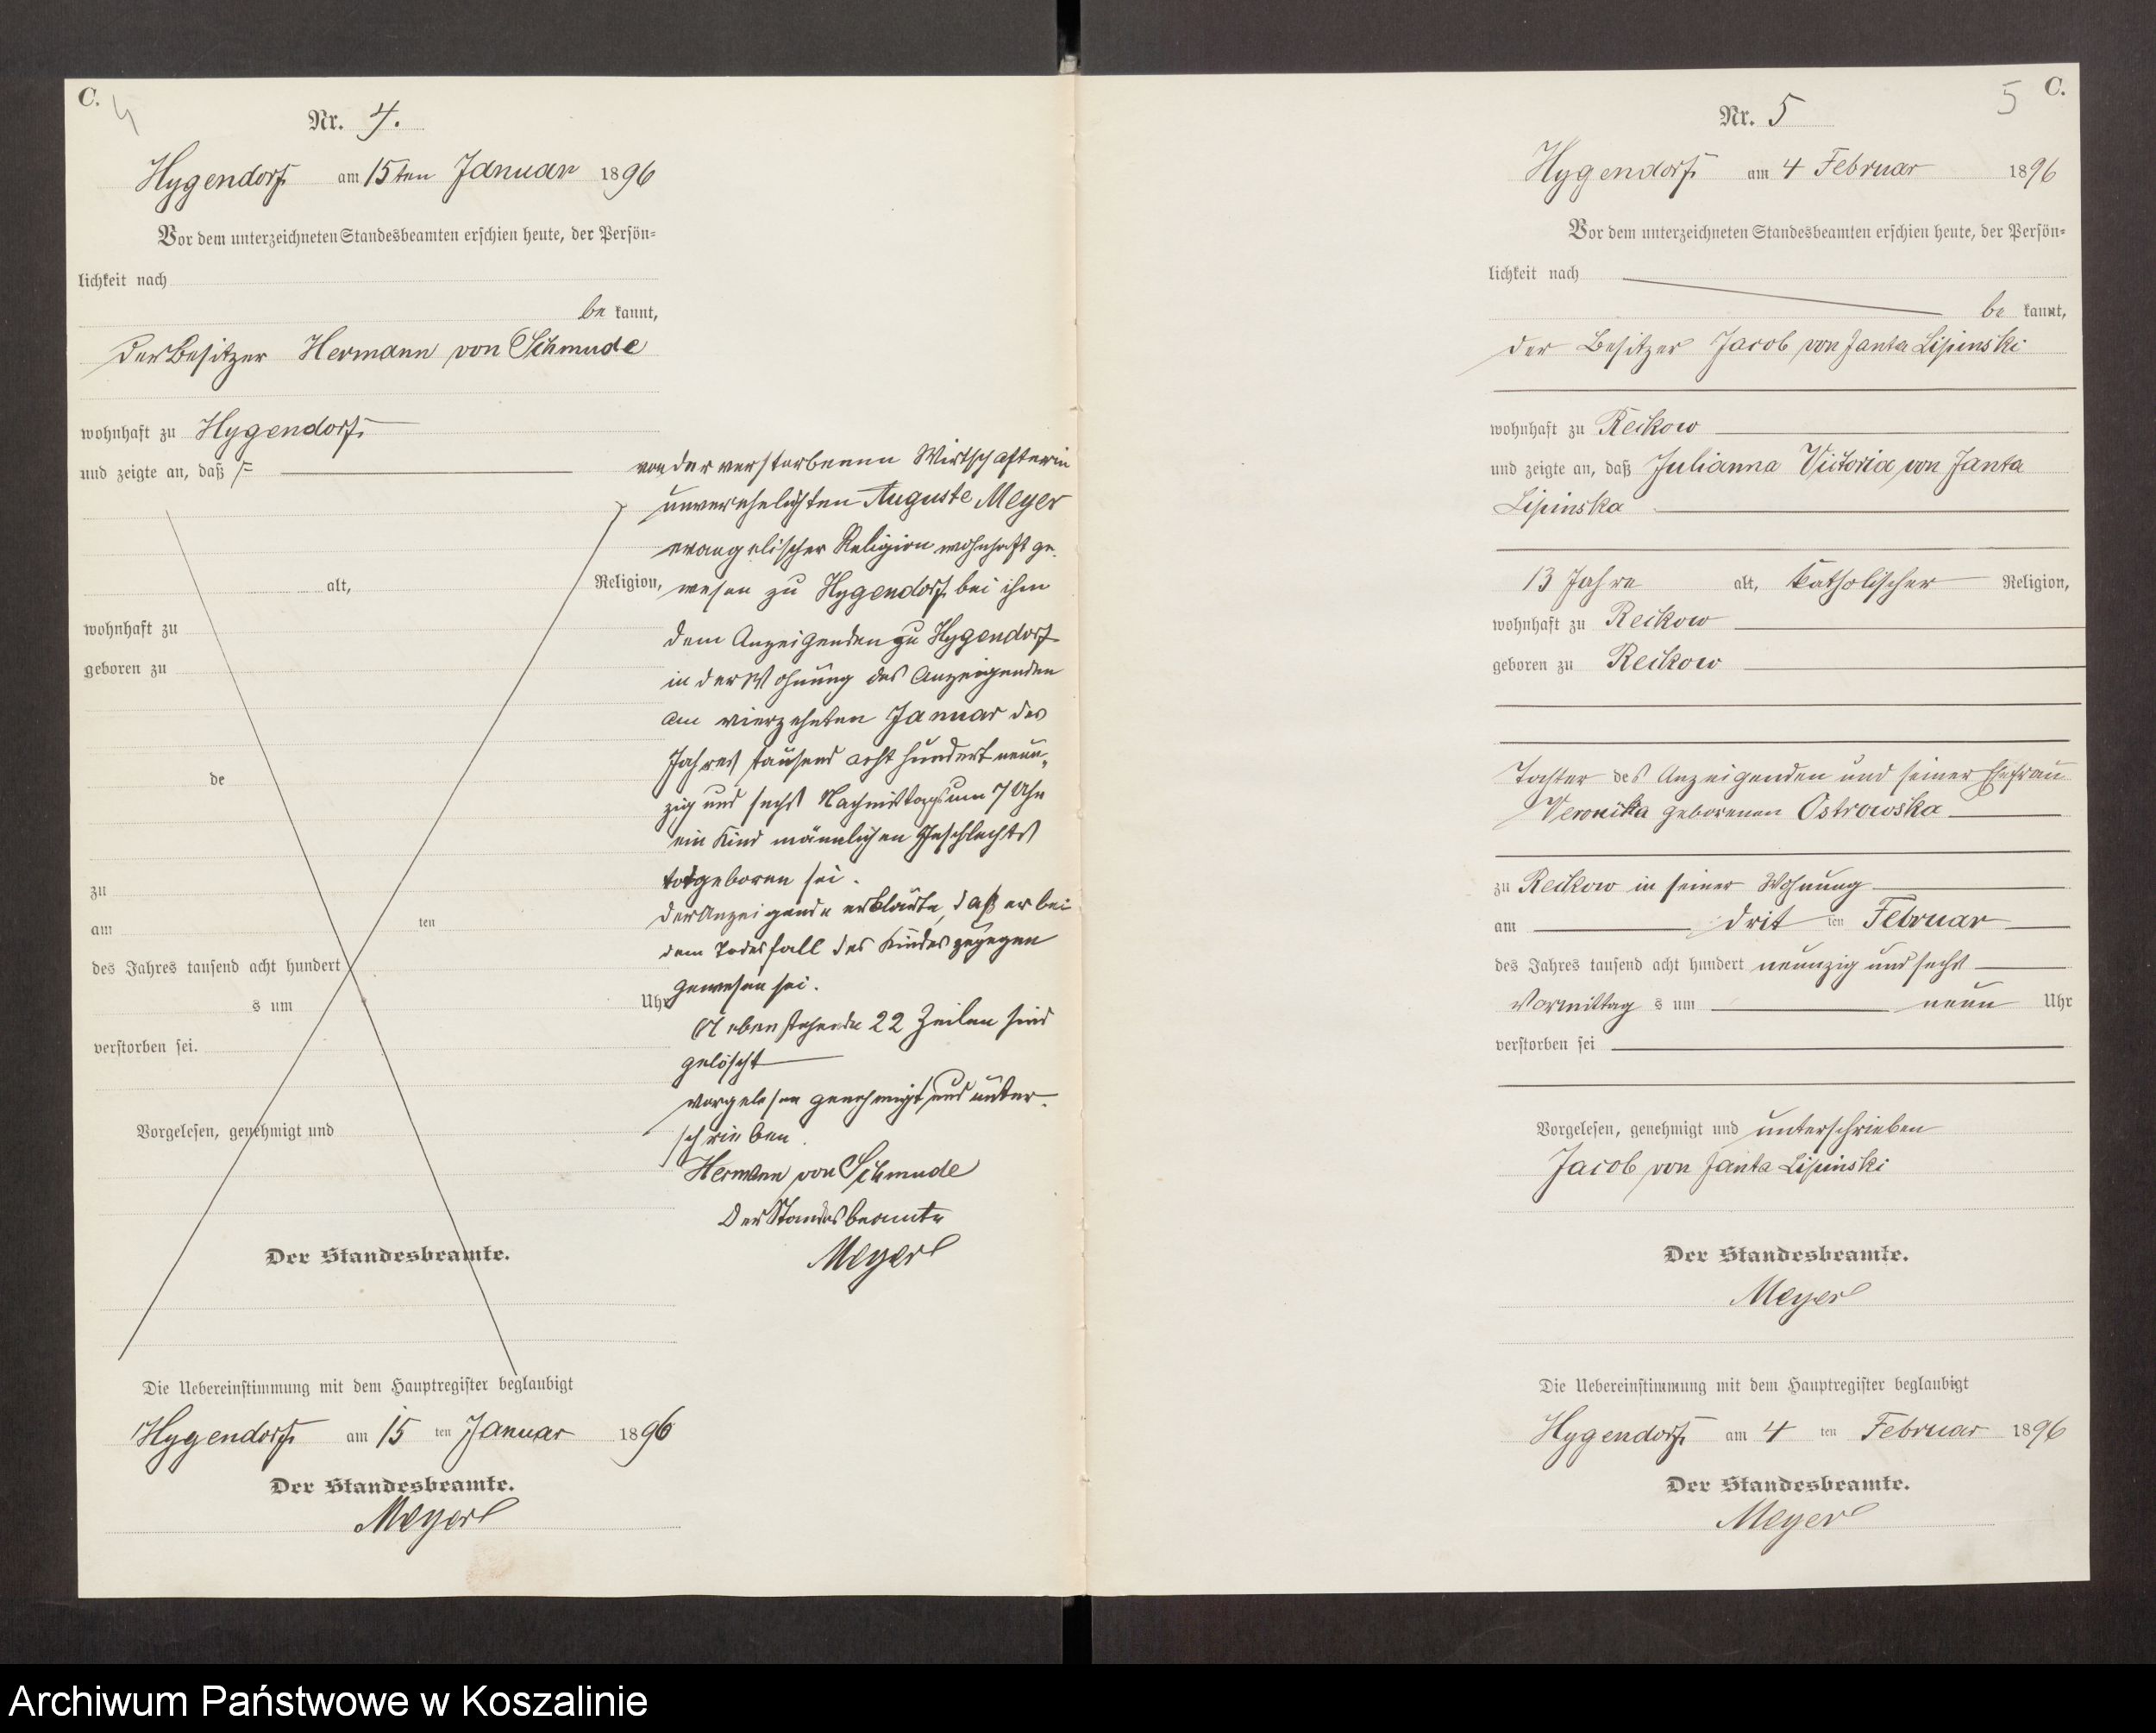 C.
4
Nr. 4.
Hygendorf am 15ten Januar 1896
Vor dem unterzeichneten Standesbeamten erschien heute, der Persön=
lichkeit nach
be kannt,
der Besitzer Hermann von Schmude
wohnhaft zu Hygendorf
und zeigte an, daß
alt, Religion,
wohnhaft zu
geboren zu
de
zu
am ten
des Jahres tausend acht hundert
s um Uhr
verstorben sei.
Vorgelesen, genehmigt und
Der Standesbeamte.
von der verstorbenen Wirthschafterin
unverehelichten Auguste Meyer
evangelischer Religion wohnhaft ge-
wesen zu Hygendorf bei ihm
dem Anzeigenden zu Hygendorf
in der Wohnung des Anzeigenden
am vierzehnten Januar des
Jahres tausend acht hundert neun-
zig und sechs Nachmittags um 7 Uhr
ein Kind männlichen Geschlechts
totgeboren sei.
Der Anzeigende erklärte, daß er bei
dem Todesfall des Kindes zugegen
gewesen sei.
Nebenstehende 22 Zeilen sind
gelöscht
Vorgelesen genehmigt und unter-
schrieben.
Hermann von Schmude
Der Standesbeamte
Meyer
Die Uebereinstimmung mit dem Hauptregister beglaubigt
Hygendorf am 15 ten Januar 1896
Der Standesbeamte.
Meyer
5
C.
Nr. 5
Hygendorf am 4 Februar 1896
Vor dem unterzeichneten Standesbeamten erschien heute, der Persön=
lichkeit nach
be kannt,
der Besitzer Jacob von Janta Lipinski
wohnhaft zu Reikow
und zeigte an, daß Julianna Victoria von Janta
Lipinska
13 Jahre alt, katholischer Religion,
wohnhaft zu Reikow
geboren zu Reikow
Tochter des Anzeigenden und seiner Ehefrau
Veronika geborenen Ostrowska
zu Reikow in seiner Wohnung
am drit ten Februar
des Jahres tausend acht hundert neunzig und sechs
Vormittag s um neun Uhr
verstorben sei
Vorgelesen, genehmigt und unterschrieben
Jacob von Janta Lipinski
Der Standesbeamte.
Meyer
Die Uebereinstimmung mit dem Hauptregister beglaubigt
Hygendorf am 4 ten Februar 1896
Der Standesbeamte.
Meyer
Archiwum Państwowe w Koszalinie